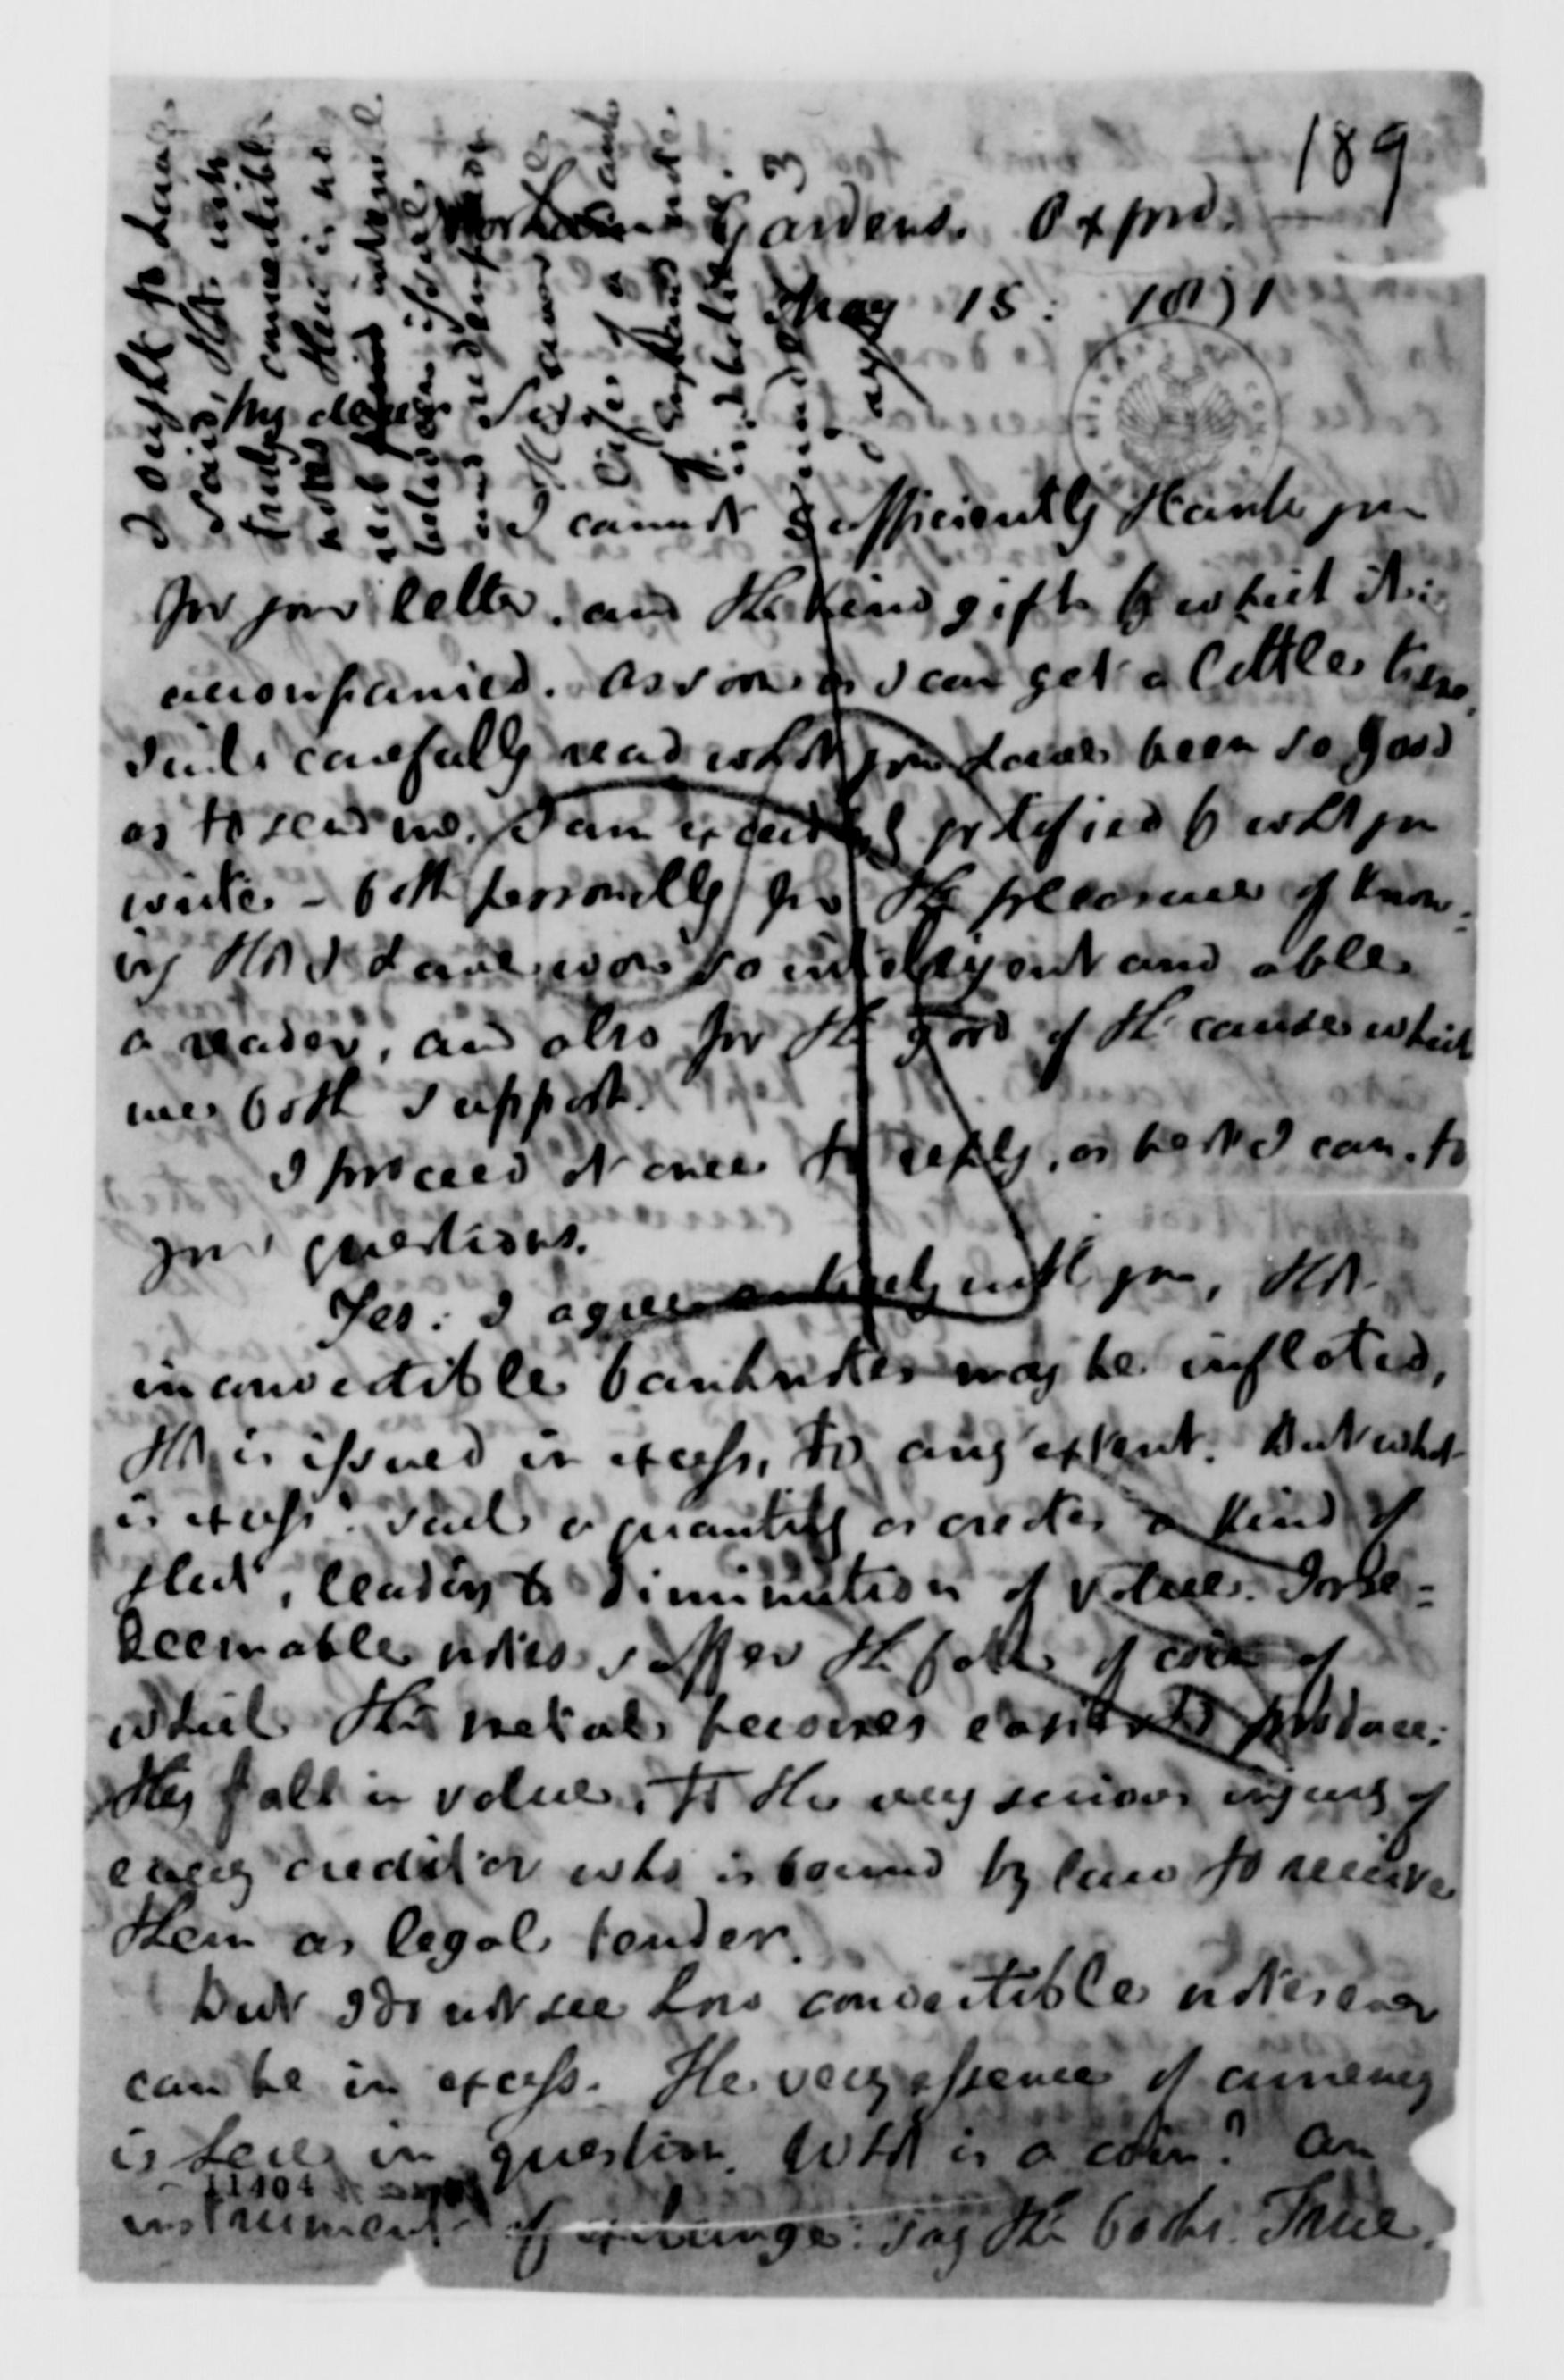 189
3 Norham Gardens. Oxford.
May 15: 1871
My dear Sir,
I cannot sufficiently thank you
for your letter, and the kind gifts by which it is
accompanied. As soon as I can get a little time,
I will carefully read what you have been so good
as to send me. I am exceedingly gratified by what you
write - both personally for the pleasure of know-
ing that I have won so intelligent and able
a reader, and also for the good of the cause which
we both support.
I proceed at once to reply, as best I can, to
your questions.
Yes: I agree entirely with you, that
inconvertible banknotes may be inflated,
that is issued in excess, to any extent. But what
is excess? Such a quantity as creates a kind of
glut, leading to diminution of value. Irre-
deemable notes suffer the fate of coin of
which the metal becomes
they fall in value, to the very serious injury of
every creditor who is bound by law to receive
them as legal tender.
But I do not see how convertible notes ever
can be in excess. The very essence of currency
is here in question. What is a coin? An
11404
instrument of exchange: say the books. True.
I ought to have
said, that with
truly convertible
notes there is no